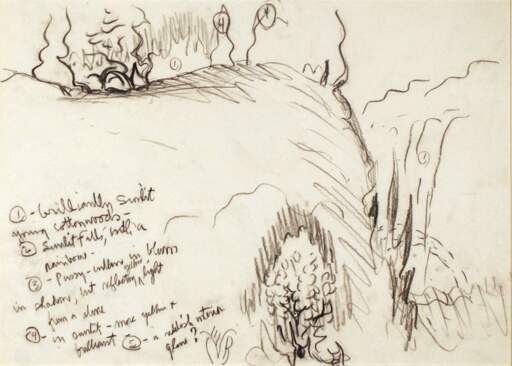 4
1
2
① - brilliantly sunlit
young cottonwoods -
② Sunlit falls, with a
rainbow -
③ - Pussy-willow in bloom
in shadow, but reflecting light
from above
④ - in sunlit - more yellow +
brilliant - a reddish intense
glow!